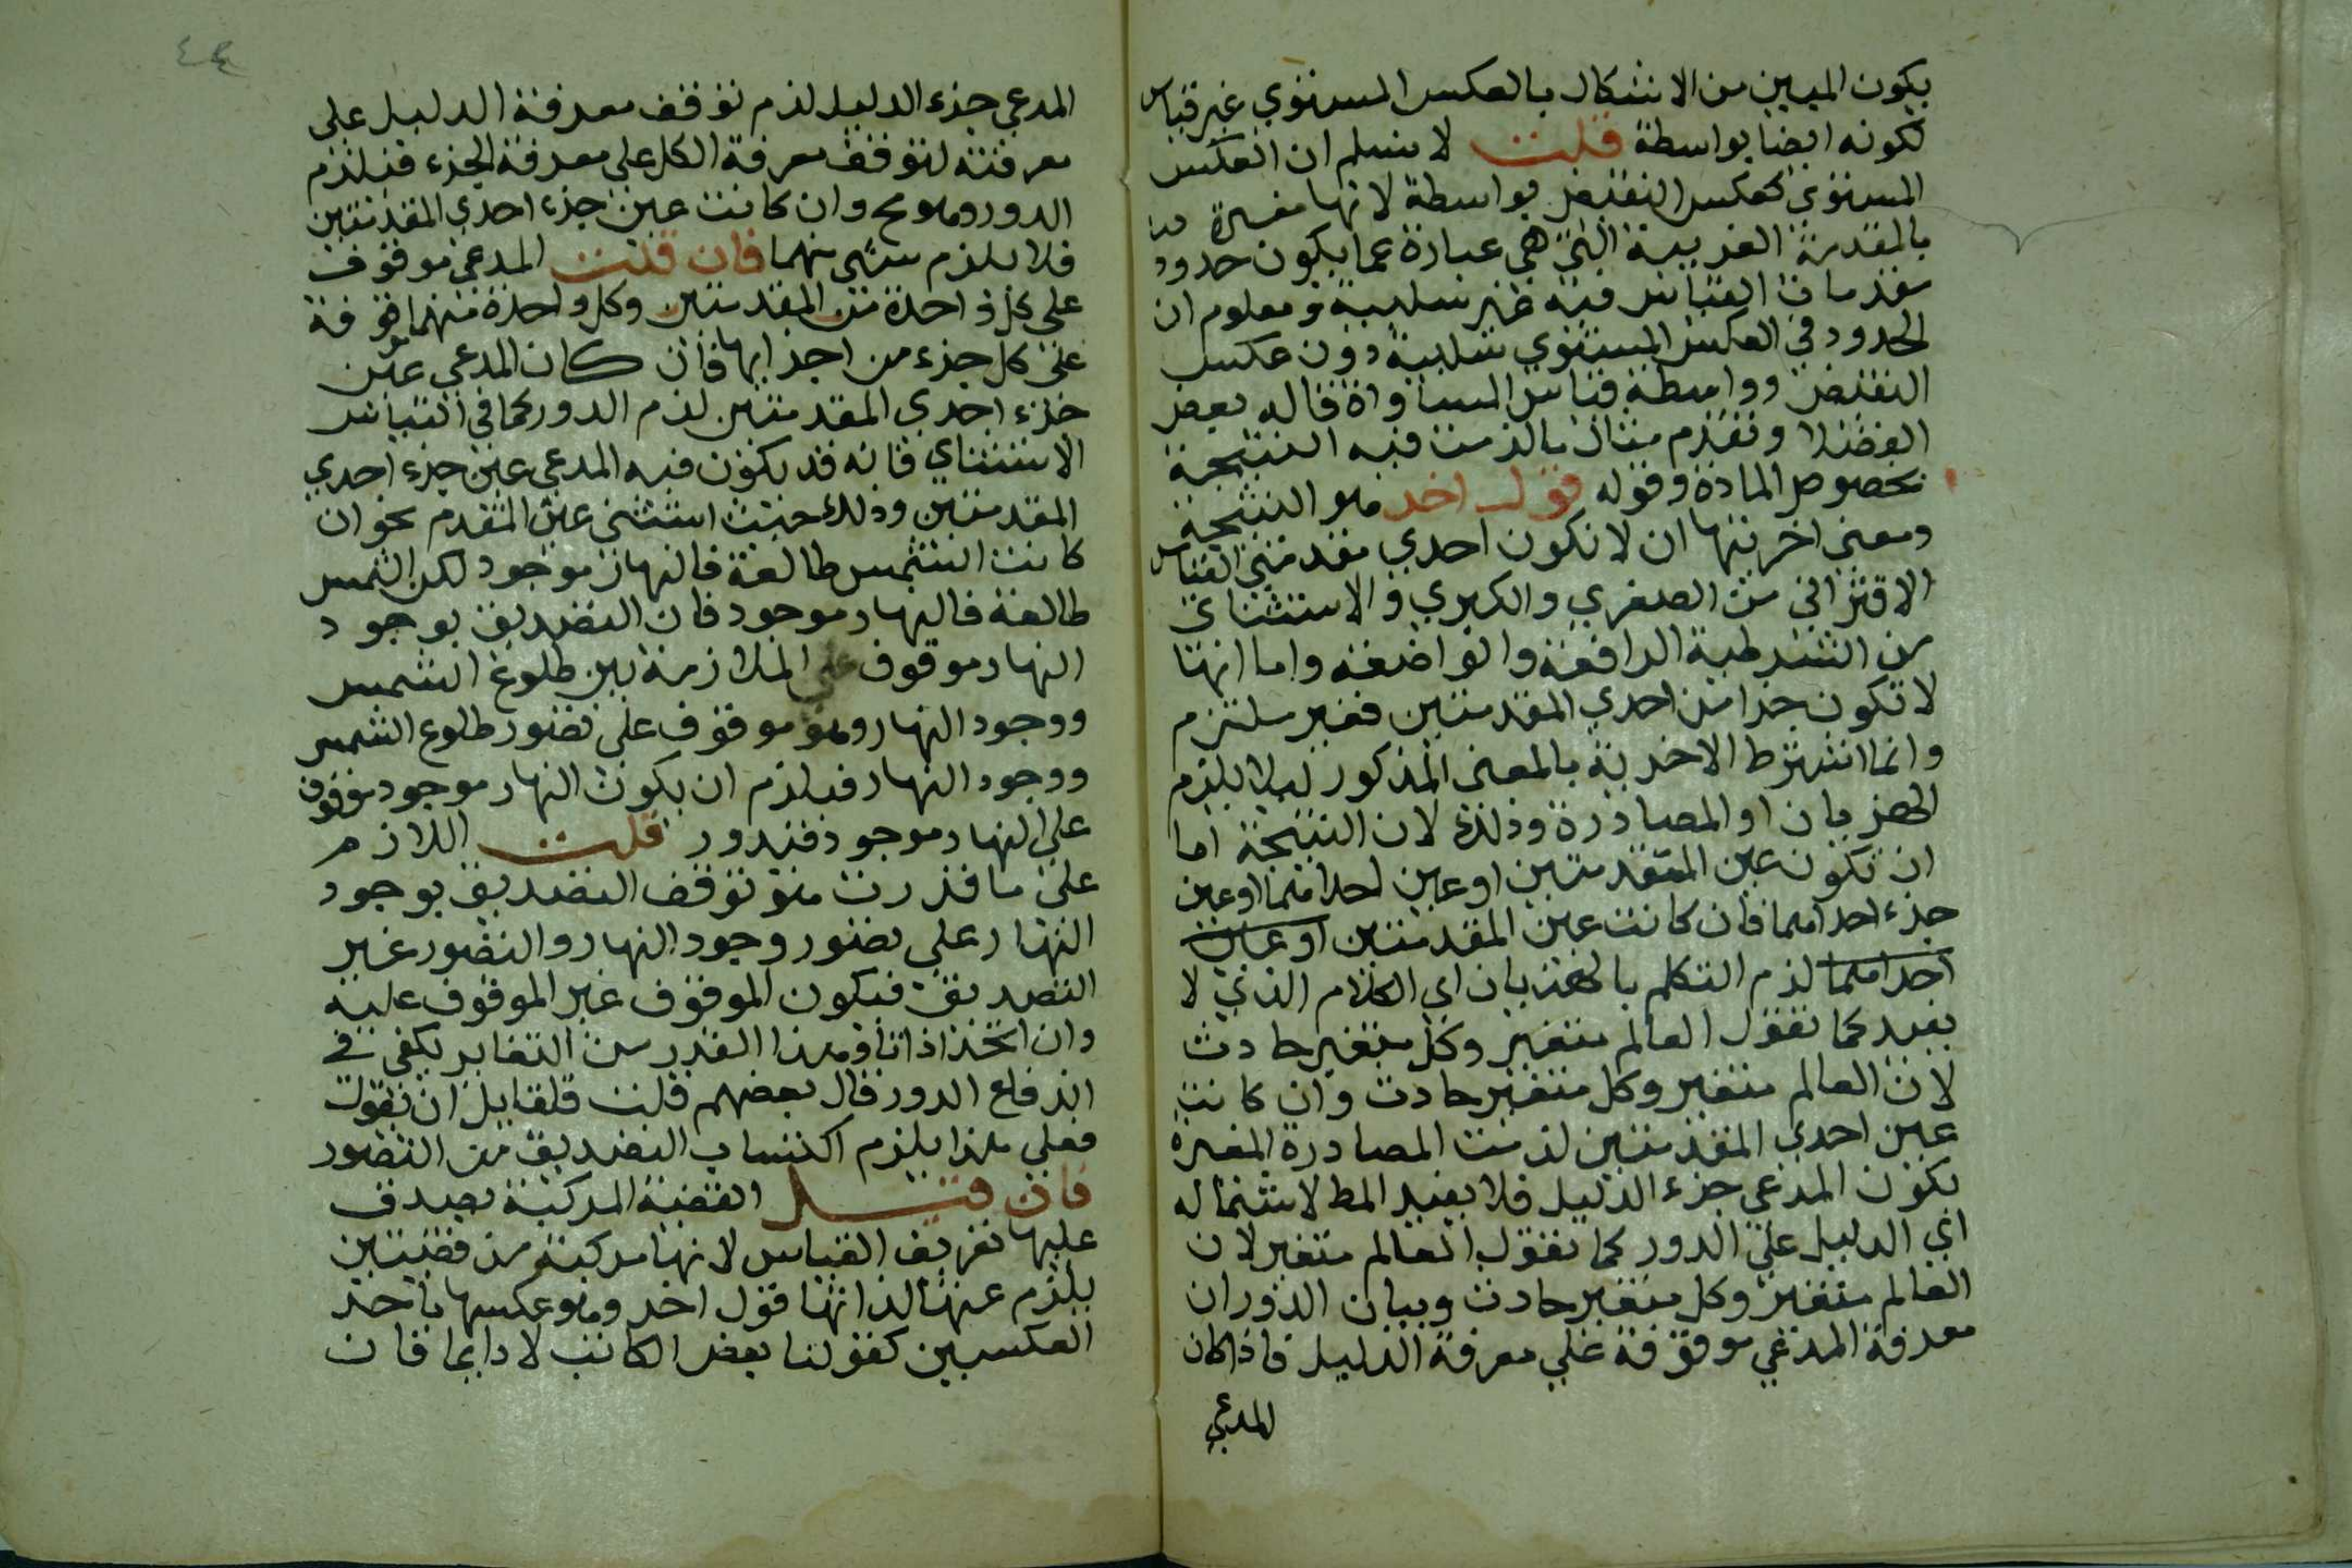 يكون المبين من الاشكال بالعكس المستوي غير قياس
لكونه ايضا بواسطة قلت لا نسلم ان العكس
المستوي كعكس النقيض بواسطة لانها مفسرة هنا
بالمقدمة الغريبة التي هي عبارة عما يكون حدود
مقدمات القياس فيه غير سلبية ومعلوم ان
الحدود في العكس المستوي سلبية دون عكس
النقيض وواسطة قياس المساواة قاله بعض
الفضلا وتقدم مثال ما لزمت فيه النتيجة
بخصوص المادة وقوله قول اخر هو النتيجة
ومعنى اخريتها ان لا تكون احدي مقدمتي القياس
الاقتراني من الصغري والكبري والاستثناي
من الشرطية الرافعة والواضعة واما انها
لا تكون جزا من احدي المقدمتين فغير ملتزم
وانما اشترط الاخرية بالمعنى المذكور ليلا يلزم
الهذيان او المصادرة وذلك لان النتيجة اما
ان تكون عين المقدمتين او عين احداهما او عين
جزء احداهما فان كانت عين المقدمتين او عين
احداهما لزم التكلم بالهذيان اي الكلام الذي لا
يفيد كما تقول العالم متغير وكل متغير حادث
لان العالم متغير وكل متغير حادث وان كانت
عين احدي المقدمتين لزمت المصادرة المفسرة
بكون المدعي جزء الدليل فلا يفيد المط لاشتماله
اي الدليل علي الدور كما تقول العالم متغير لان
العالم متغير وكل متغير حادث وبيان الدور ان
معرفة المدعي موقوفة علي معرفة الدليل فاذا كان
المدعي
٤٤
المدعي جزء الدليل لزم توقف معرفة الدليل علي
معرفته لتوقف معرفة الكل علي معرفة الجزء فيلزم
الدور وهو مح وان كانت عين جزء احدي المقدمتين
فلا يلزم شي منهما فان قلت المدعي موقوف
علي كل واحدة من المقدمتين وكل واحدة منهما موقوفة
علي كل جزء من اجزايها فان كان المدعي عين
جزء احدي المقدمتين لزم الدور كما في القياس
الاستثناي فانه قد يكون فيه المدعي عين جزء احدي
المقدمتين وذلك حيث استثنى عين المقدم نحو ان
كانت الشمس طالعة فالنهار موجود لكن الشمس
طالعة فالنهار موجود فان التصديق بوجود
النهار موقوف علي الملازمة بين طلوع الشمس
ووجود النهار وهو موقوف علي تصور طلوع الشمس
ووجود النهار فيلزم ان يكون النهار موجود موقوف
علي النهار موجود فيدور قلت اللازم
علي ما قدرت هو توقف التصديق بوجود
النهار علي تصور وجود النهار والتصور غير
التصديق فيكون الموقوف غير الموقوف عليه
وان اتحدا ذاتا وهذا القدر من التغاير يكفي في
اندفاع الدور قال بعضهم قلت فلقايل ان يقول
فعلي هذا يلزم اكتساب التصديق من التصور
فان قيل القضية المركبة يصدق
عليها تعريف القياس لانها مركبة من قضيتين
يلزم عنها لذاتها قول اخر وهو عكسها باحد
العكسين كقولنا بعض الكاتب لا دايما فان